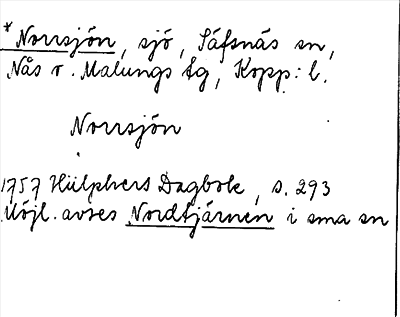 *Norrsjön, sjö, Säfsnäs sn,
Nås o. Malungs tg, Kopp: l.
Norrsjön
1757 Hülphers Dagbok, s. 293
Möjl. avses Nordtjärnen i sma sn